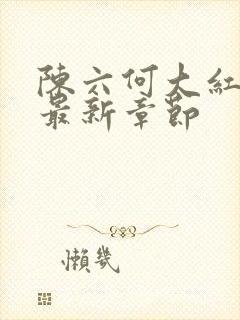 陳六何大紅
最新章節
懶幾